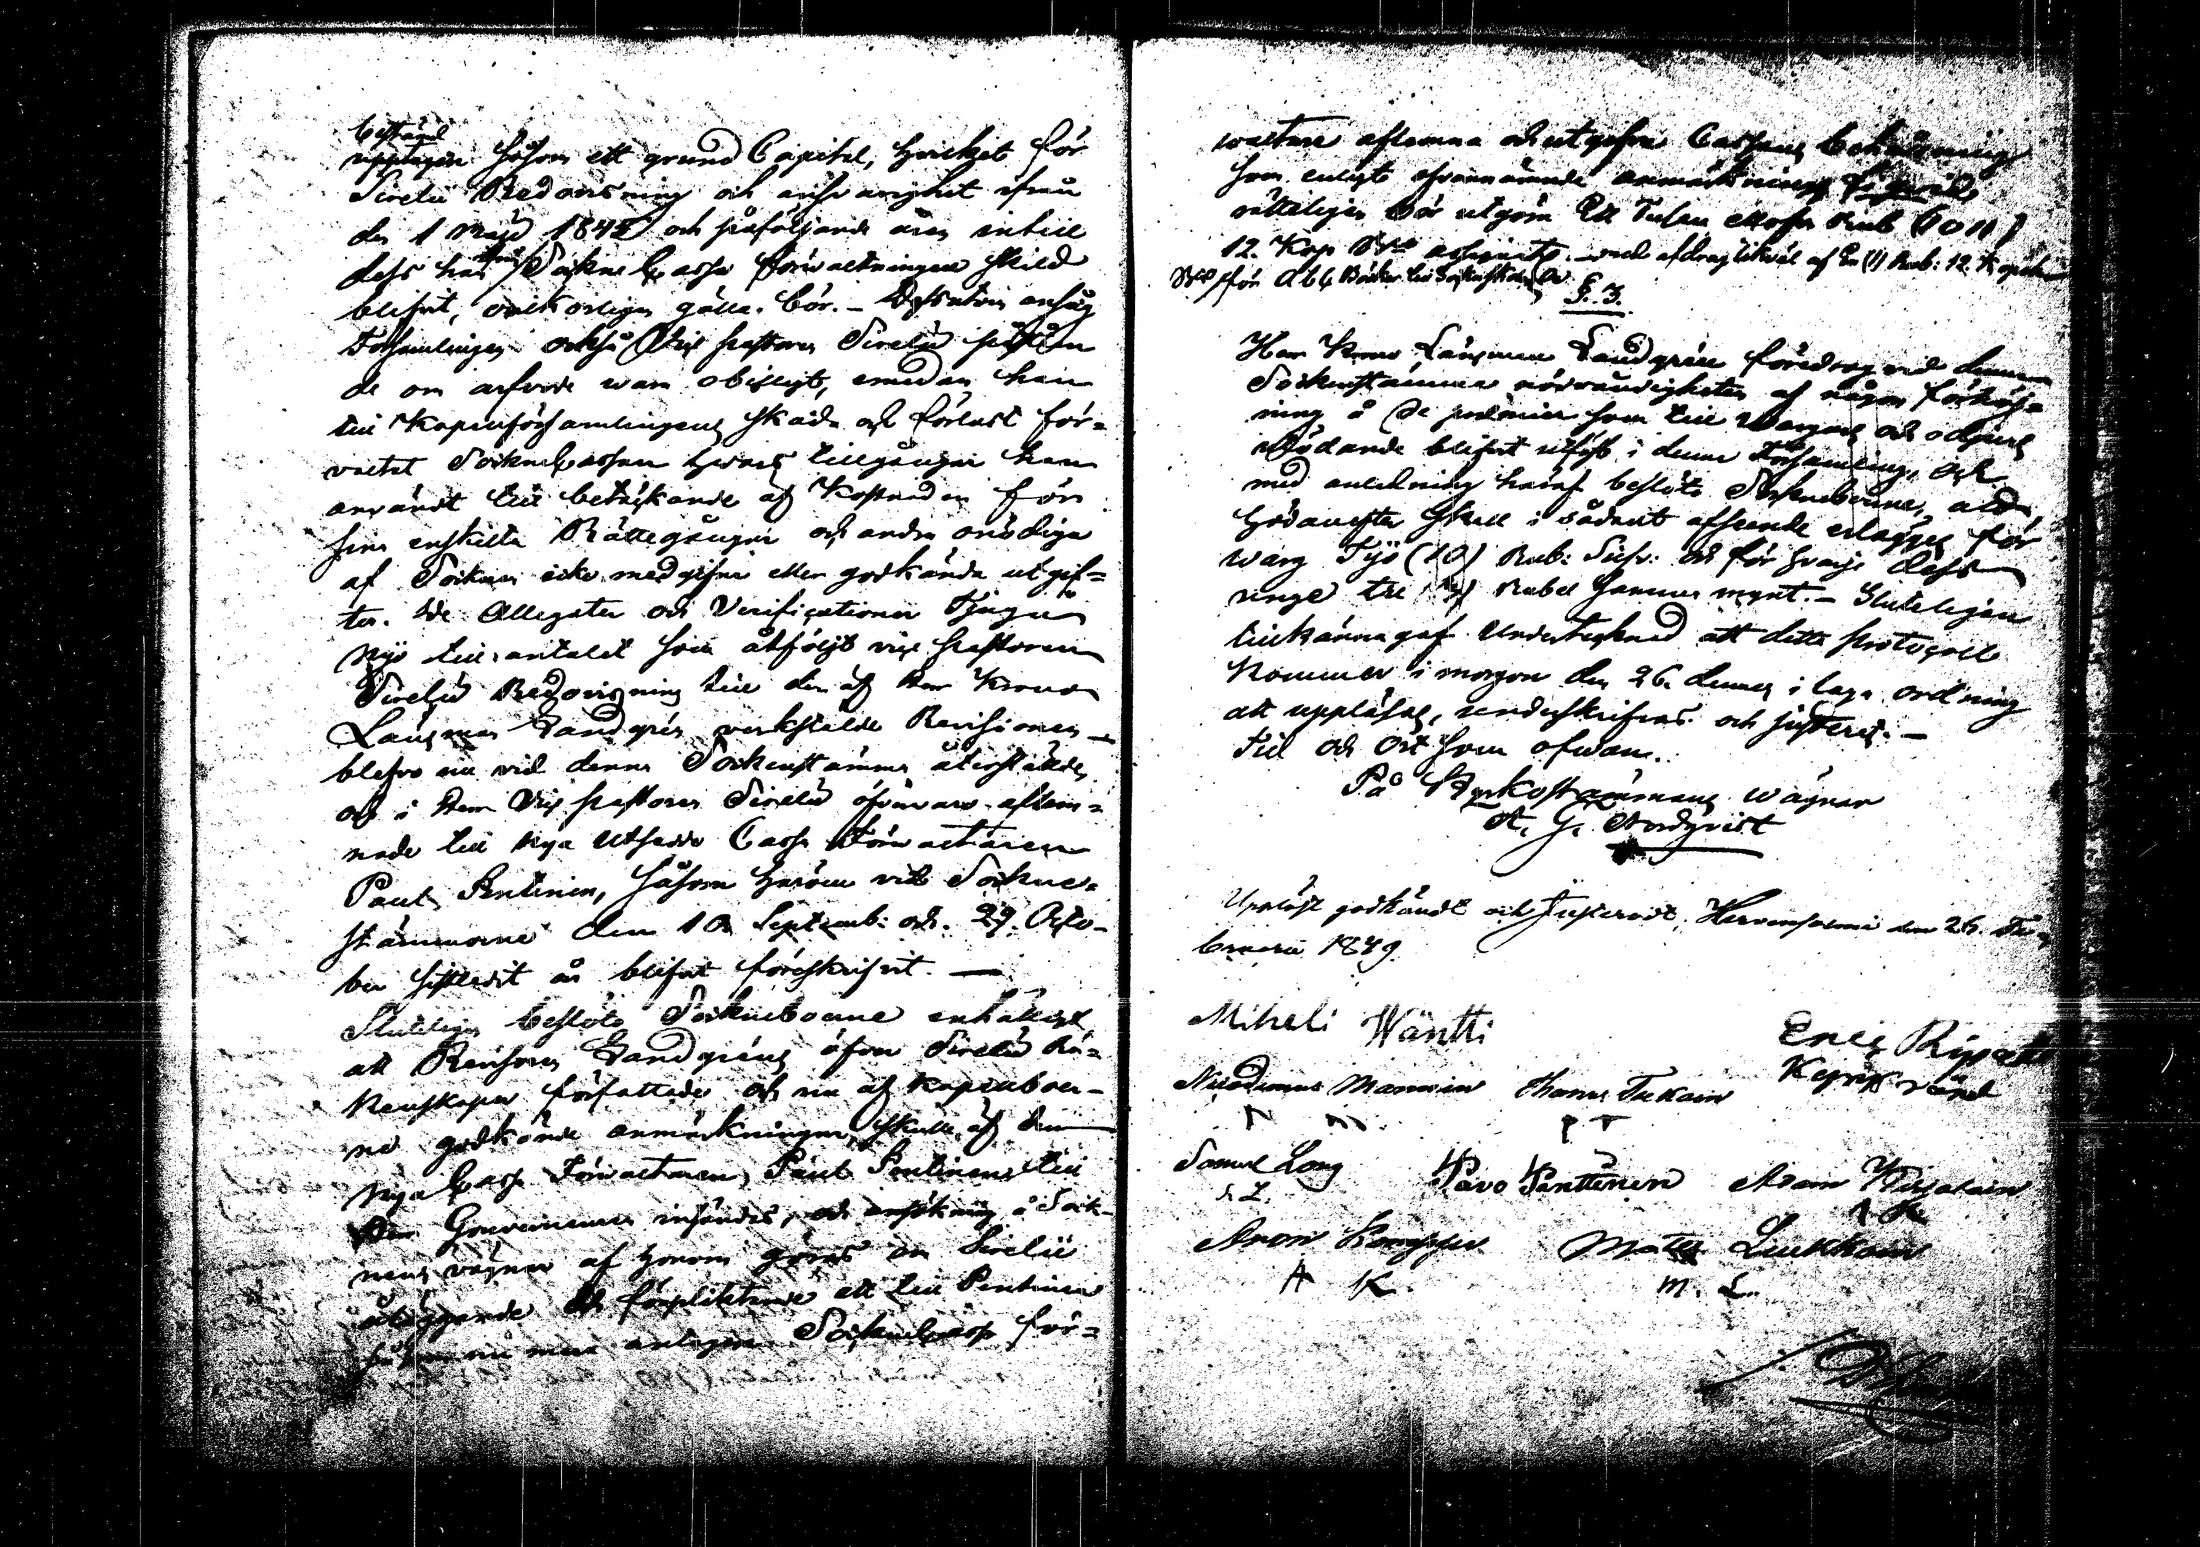 bestånd
upptagen såsom ett grund Capital, hvilket för
Sirelii Redovisning och ansvarighet ifrån
den 1 Maji 1842 och påföljande åren intill
dess han ifrån Sockne Cassa förvaltningen skild
blifvit, ovilkorligen gälla bör. — Dessutom ansåg
Församlingen också Vice pastoren Sirelii påståen
de om arfvode vara obilligt, emedan han
till Kapellförsamlingens skada och förlust för-
valtat Sockne Cassan hvars tillgångar han
användt till betäckande af Kostnaden för
sina enskilta Rättegångar och andra onödiga
af Socknen icke medgifna eller godkända utgif-
ter. De Allegater och Verificationer Tjugu
Nijo till antalet som åtföljt vice pastoren
Sirelii Redovisning till den af Herr Krono
Länsman Sandgrén verkstälde Revisionen
blefvo nu vid denna Sockenstämma återstälde,
och i Herr Vice pastoren Sirelii öfvervaro aflem-
nade till nya utsedde Cassa Förvaltaren
Paul Pentinen, såsom härom vid Sockne-
stämmorne den 10 Septemb: och 29. Octo-
ber sistledit år blifvit föreskrifvit. —
Slutligen beslöto Sockneboerne enhälligt,
att Revisoren Sandgréns öfver Sirelii Rä-
kenskaper författade och nu af Kapellboer-
ne godkände anmärkningar, skulle af den
Nya Cassa Förvaltaren, Paul Pentinen till
Herr Gouverneuren insändas, och ansökning å Sock-
nens vägnar af honom göras om Sirelii
åläggande och förpliktande att till Pentinen
såsom nu mera antagen Sockne Cassa för-
valtare aflemna och utgifva Cassans behållning
som enligt ofvannämnde anmärkningar
rätteligen bör utgöra Ett Tusen ellofva Rub (1011)
12. Kop Bco assignat. med afdrag likväl af En (1) Rub: 12. Kopek
Bco för Abc Böcker
§. 3.
Herr Krono Länsman Sandgrén föredrog vid denna
Sockenstämma nödvändigheten af någon förhöj-
ning å de premier som till Wargars och odjurs
dödande blifvit utfäst i denna Församling, och
med anledning häraf beslöto Sockneboerne, att
hädanefter skall i sådant afseende erlägges för
warg Tijo (10) Rub: Silfv: och för hvarje dess
unge tre (3) Rubel samma mynt. — Slutligen
tillkännagaf Undertecknad att detta protocoll
Kommer i morgon den 26. dennes i laga ordning
att uppläsas, underskrifvas och justeras. —
Tid och Ort som ofvan.
På Kyrkostämmans wägnar
A. G. Nordqvist
Uppläst godkändt och Justeradt. Hervensalmi den 26. Fe-
bruarii 1849.
Mikeli Wäntti
Eric Ripatti
Kyrkovärd
Nicodemus Manninen Thomas Tukiain
N M. P T
Samuel Long Pavo Pänttinen Aram
S. L.
Aron Kemppi Matts Liukkoin
A K. M. L.